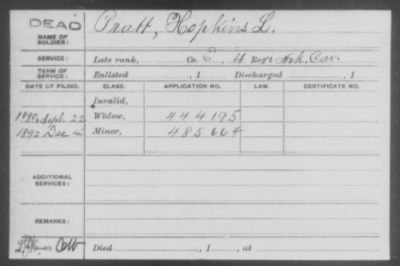 DEAD
NAME OF SOLDIER: Pratt, Hopkins L.
SERVICE: Late rank, Co. E, 4 Reg't Ark. Cav.
TERM OF SERVICE: Enlisted , 1 Discharged , 1
DATE OF FILING. CLASS. APPLICATION NO. LAW. CERTIFICATE NO.
Invalid,
1890, Sept. 22 Widow, 444195
1892 Dec Minor, 485664
ADDITIONAL SERVICES:
REMARKS:
Died , 1 , at